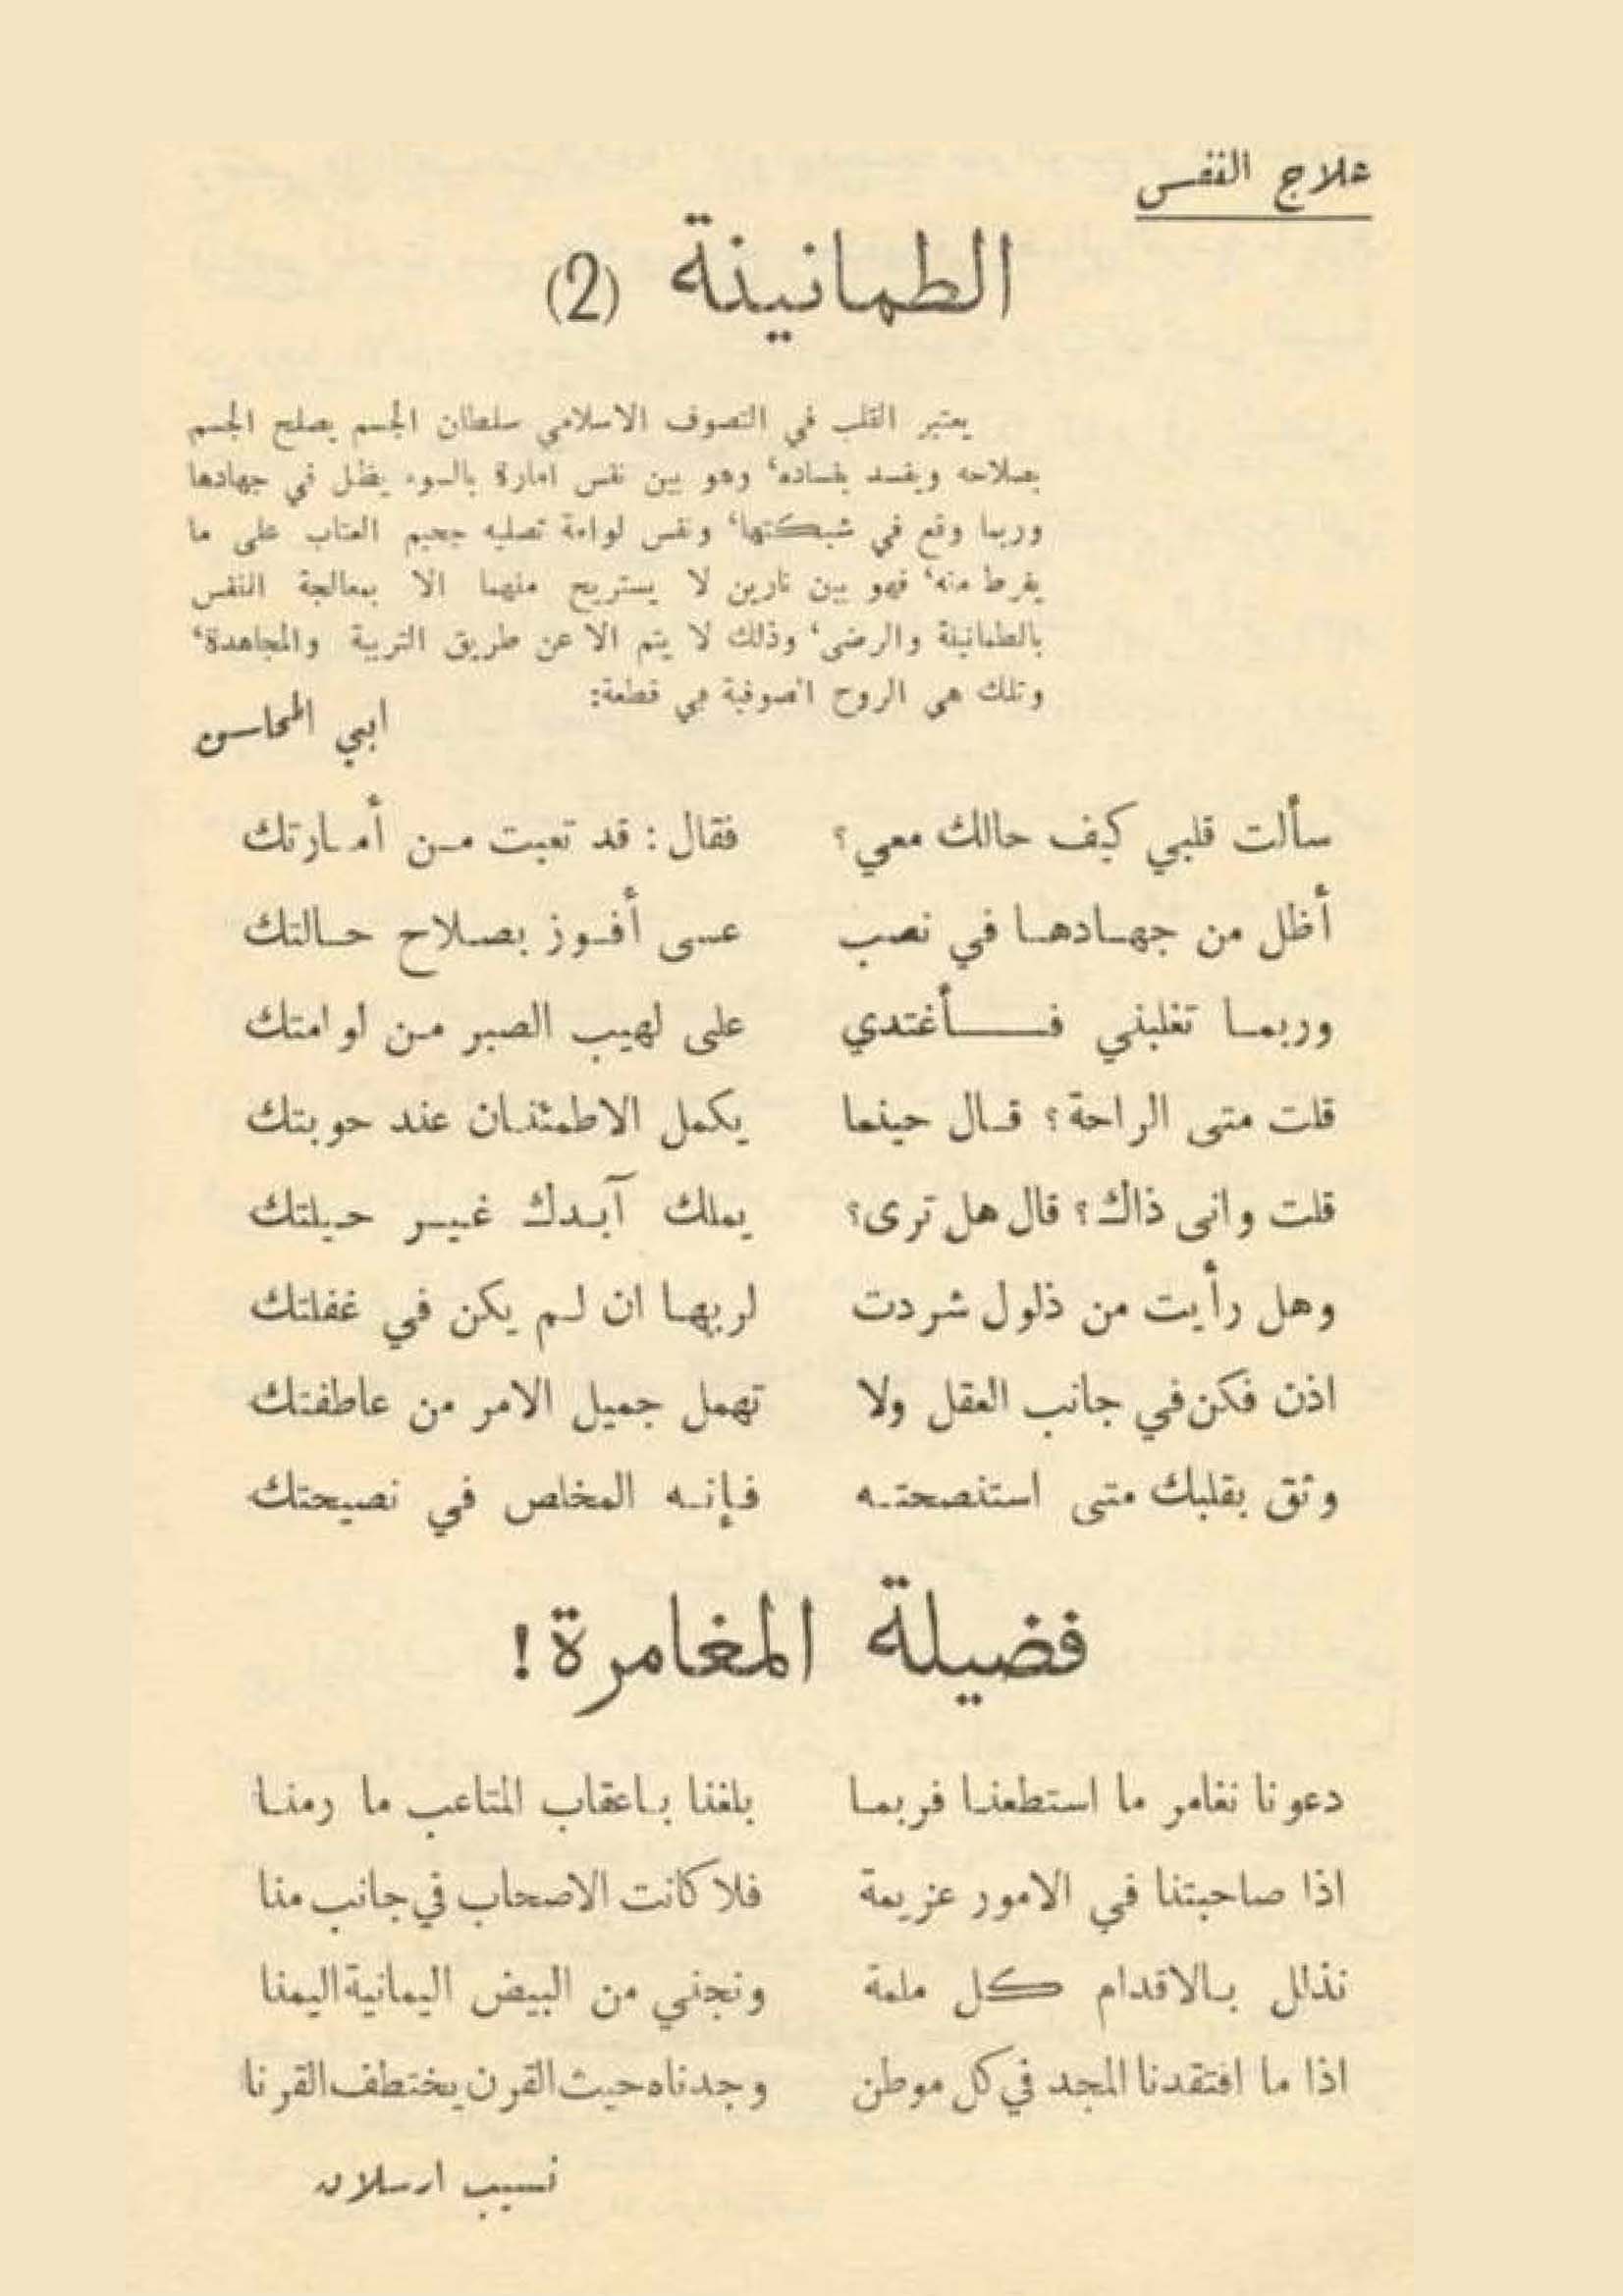 علاج النفس
الطمانينة (2)
يعتبر القلب في التصوف الاسلامي سلطان الجسم يصلح الجسم
بصلاحه ويفسد بفساده، وهو بين نفس امارة بالسوء يظل في جهادها
وربما وقع في شبكتها، ونفس لوامة تصليه جحيم العتاب على ما
يفرط منه، فهو بين نارين لا يستريح منهما الا بمعالجة النفس
بالطمانينة والرضى، وذلك لا يتم الا عن طريق التربية والمجاهدة،
وتلك هي الروح الصوفية في قطعة:
ابي المحاسن
سألت قلبي كيف حالك معي؟ فقال: قد تعبت من أمارتك
أظل من جهادها في نصب عسى أفوز بصلاح حالتك
وربما تغلبني فأغتدي على لهيب الصبر من لوامتك
قلت متى الراحة؟ قال حينما يكمل الاطمئنان عند حوبتك
قلت وانى ذاك؟ قال هل ترى؟ يملك آبدك غير حيلتك
وهل رأيت من ذلول شردت لربها ان لم يكن في غفلتك
اذن فكن في جانب العقل ولا تهمل جميل الامر من عاطفتك
وثق بقلبك متى استنصحته فإنه المخلص في نصيحتك
فضيلة المغامرة!
دعونا نغامر ما استطعنا فربما بلغنا باعقاب المتاعب ما رمنا
اذا صاحبتنا في الامور عزيمة فلا كانت الاصحاب في جانب منا
نذلل بالاقدام كل ملمة ونجني من البيض اليمانية اليمنا
اذا ما افتقدنا المجد في كل موطن وجدناه حيث القرن يختطف القرنا
نسيب ارسلان